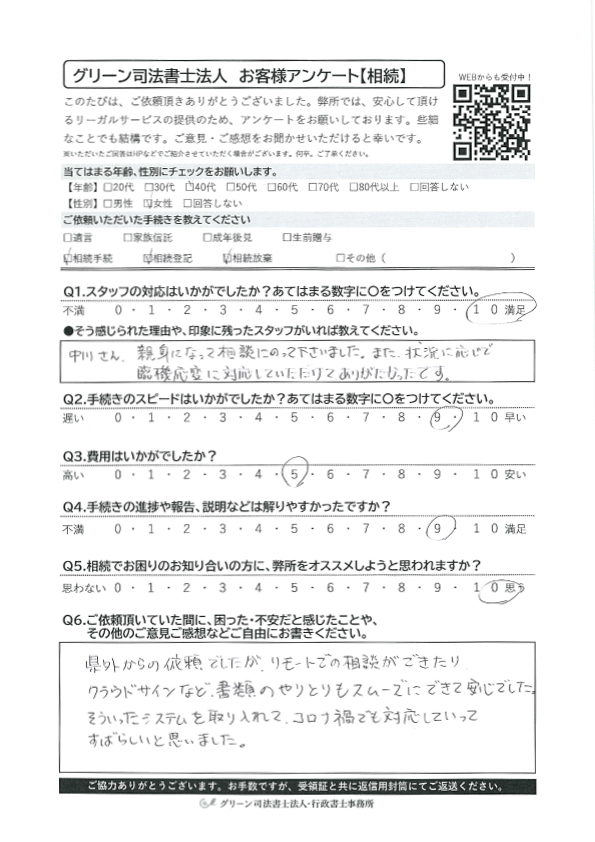 グリーン司法書士法人 お客様アンケート【相続】
WEBからも受付中！
このたびは、ご依頼頂きありがとうございました。弊所では、安心して頂け
るリーガルサービスの提供のため、アンケートをお願いしております。些細
なことでも結構です。ご意見・ご感想をお聞かせいただけると幸いです。
※いただいたご回答はHPなどでご紹介させていただく場合がございます。何卒、ご了承ください。
当てはまる年齢、性別にチェックをお願いします。
【年齢】□20代 □30代 ☑40代 □50代 □60代 □70代 □80代以上 □回答しない
【性別】□男性 ☑女性 □回答しない
ご依頼いただいた手続きを教えてください
□遺言 □家族信託 □成年後見 □生前贈与
☑相続手続 ☑相続登記 ☑相続放棄 □その他（ ）
Q1.スタッフの対応はいかがでしたか？あてはまる数字に〇をつけてください。
不満 0・1・2・3・4・5・6・7・8・9・10 満足
●そう感じられた理由や、印象に残ったスタッフがいれば教えてください。
中川さん、親身になって相談にのって下さいました。また、状況に応じて
臨機応変に対応していただけてありがたかったです。
Q2.手続きのスピードはいかがでしたか？あてはまる数字に〇をつけてください。
遅い 0・1・2・3・4・5・6・7・8・9・10 早い
Q3.費用はいかがでしたか？
高い 0・1・2・3・4・5・6・7・8・9・10 安い
Q4.手続きの進捗や報告、説明などは解りやすかったですか？
不満 0・1・2・3・4・5・6・7・8・9・10 満足
Q5.相続でお困りのお知り合いの方に、弊所をオススメしようと思われますか？
思わない 0・1・2・3・4・5・6・7・8・9・10 思う
Q6.ご依頼頂いていた間に、困った・不安だと感じたことや、
その他のご意見ご感想などご自由にお書きください。
県外からの依頼でしたが、リモートでの相談ができたり
クラウドサインなど、書類のやりとりもスムーズにできて安心でした。
そういったシステムを取り入れて、コロナ禍でも対応していって
すばらしいと思いました。
ご協力ありがとうございます。お手数ですが、受領証と共に返信用封筒にてご返送ください。
グリーン司法書士法人・行政書士事務所